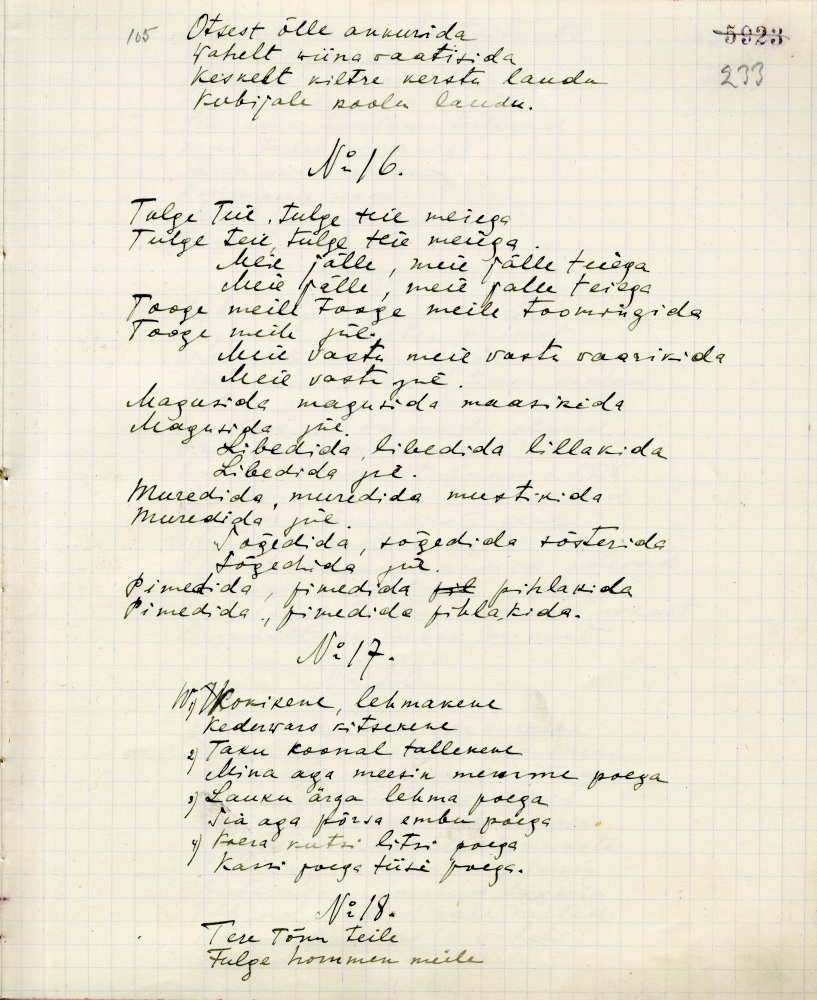 165
5923
233
Otsest õlle ankurida
Wahelt wiina vaatisida
Keskelt kiltre kerstu laudu
Kubijale koolu laudu.
No 16.
Tulge Teie, tulge teie meiega
Tulge teie, tulge teie meiega.
Meie jälle, meie jälle teiega
Meie jälle, meie jälle teiega
Tooge meile tooge meile toomingida
Tooge meile jne.
Meie vastu meie vastu vaarikida
Meie vastu jne.
Magusida magusida maasikida
Magusida jne.
Libedida, libedida lillakida
Libedida jne.
Muredida, muredida mustikida
Muredida jne.
Sõgedida, sõgedida sõsterida
Sõgedida jne.
Pimedida, pimedida pihlakida
Pimedida, pimedida pihlakida.
No 17.
1) Kokikene, lehmakene
Kederwars kitsekene
2) Taku koonal tallekene
Mina aga meesin memme poega
3) Lauku ärga lehma poega
Sia aga põrsa embu poega
4) Koera kutsi litsi poega
Kassi poega tiisi poega.
No 18.
Tere Tõnu teile
Tulge hommen meile